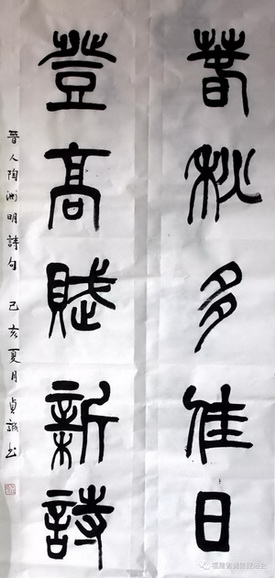 春秋多佳日
登高賦新詩
晉人陶渊明詩句 己亥夏月貞誠书